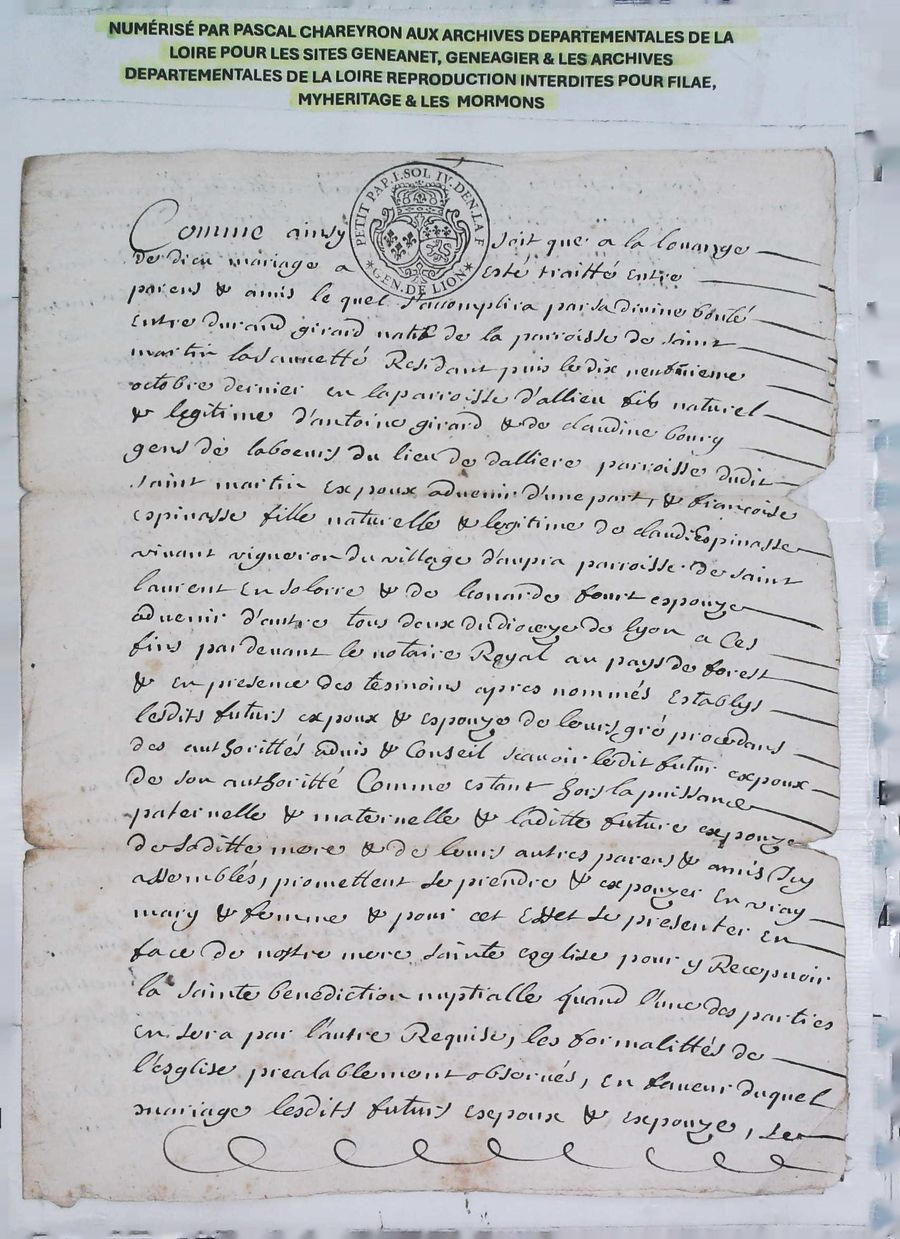 NUMÉRISÉ PAR PASCAL CHAREYRON AUX ARCHIVES DEPARTEMENTALES DE LA
LOIRE POUR LES SITES GENEANET, GENEAGIER & LES ARCHIVES
DEPARTEMENTALES DE LA LOIRE REPRODUCTION INTERDITES POUR FILAE,
MYHERITAGE & LES MORMONS
PETIT PAP. I. SOL IV. DEN. LA F
GEN. DE LION
Comme ainsy soit que a la louange
de dieu mariage a esté traitté entre
parens & amis le quel s'acomplira par sa divine bonté
Entre durand girard natif de la parroisse de saint
martin la sauvetté Residant puis le dix neufvieme
octobre dernier en la parroisse d'allieu fils naturel
& legitime d'antoine girard & de claudine bourg
gens de laboeurs du lieu de dalliere parroisse dudit
saint martin expoux advenir d'une part, & françoise
espinasse fille naturelle & legitime de claud Espinasse
vivant vigneron du village d'aupra parroisse de saint
laurent En solorre & de leonarde fourt espouze
advenir d'autre tous deux du dioceze de lyon a Ces
fins pardevant le notaire Royal au pays de forest
& en presence des tesmoins apres nommés Establys
lesdits futurs expoux & espouze de leurs gré procedans
des authorittés advis & Conseil scavoir ledit futur expoux
de son authoritté Comme estant hors la puissance
paternelle & maternelle & laditte future expouze
de saditte mere & de leurs autres parens & amis Icy
assemblés, promettent se prendre & expouzer En vray
mary & femme & pour cet Effet se presenter En
face de nostre mere sainte esglise pour y Recepvoir
la sainte benediction nuptialle quand l'une des parties
en sera par l'autre Requise, les formalittés de
l'esglise prealablement observés, en faveur duquel
mariage lesdits futurs expoux & expouze, se